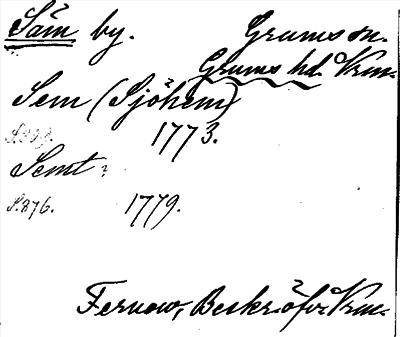 Säm by. Grums sn.
Grums hd. Vrm.
Sem (Sjöhem)
1773.
Semt
S.876. 1779.
Fernow, Beskr. öfver Vrm.